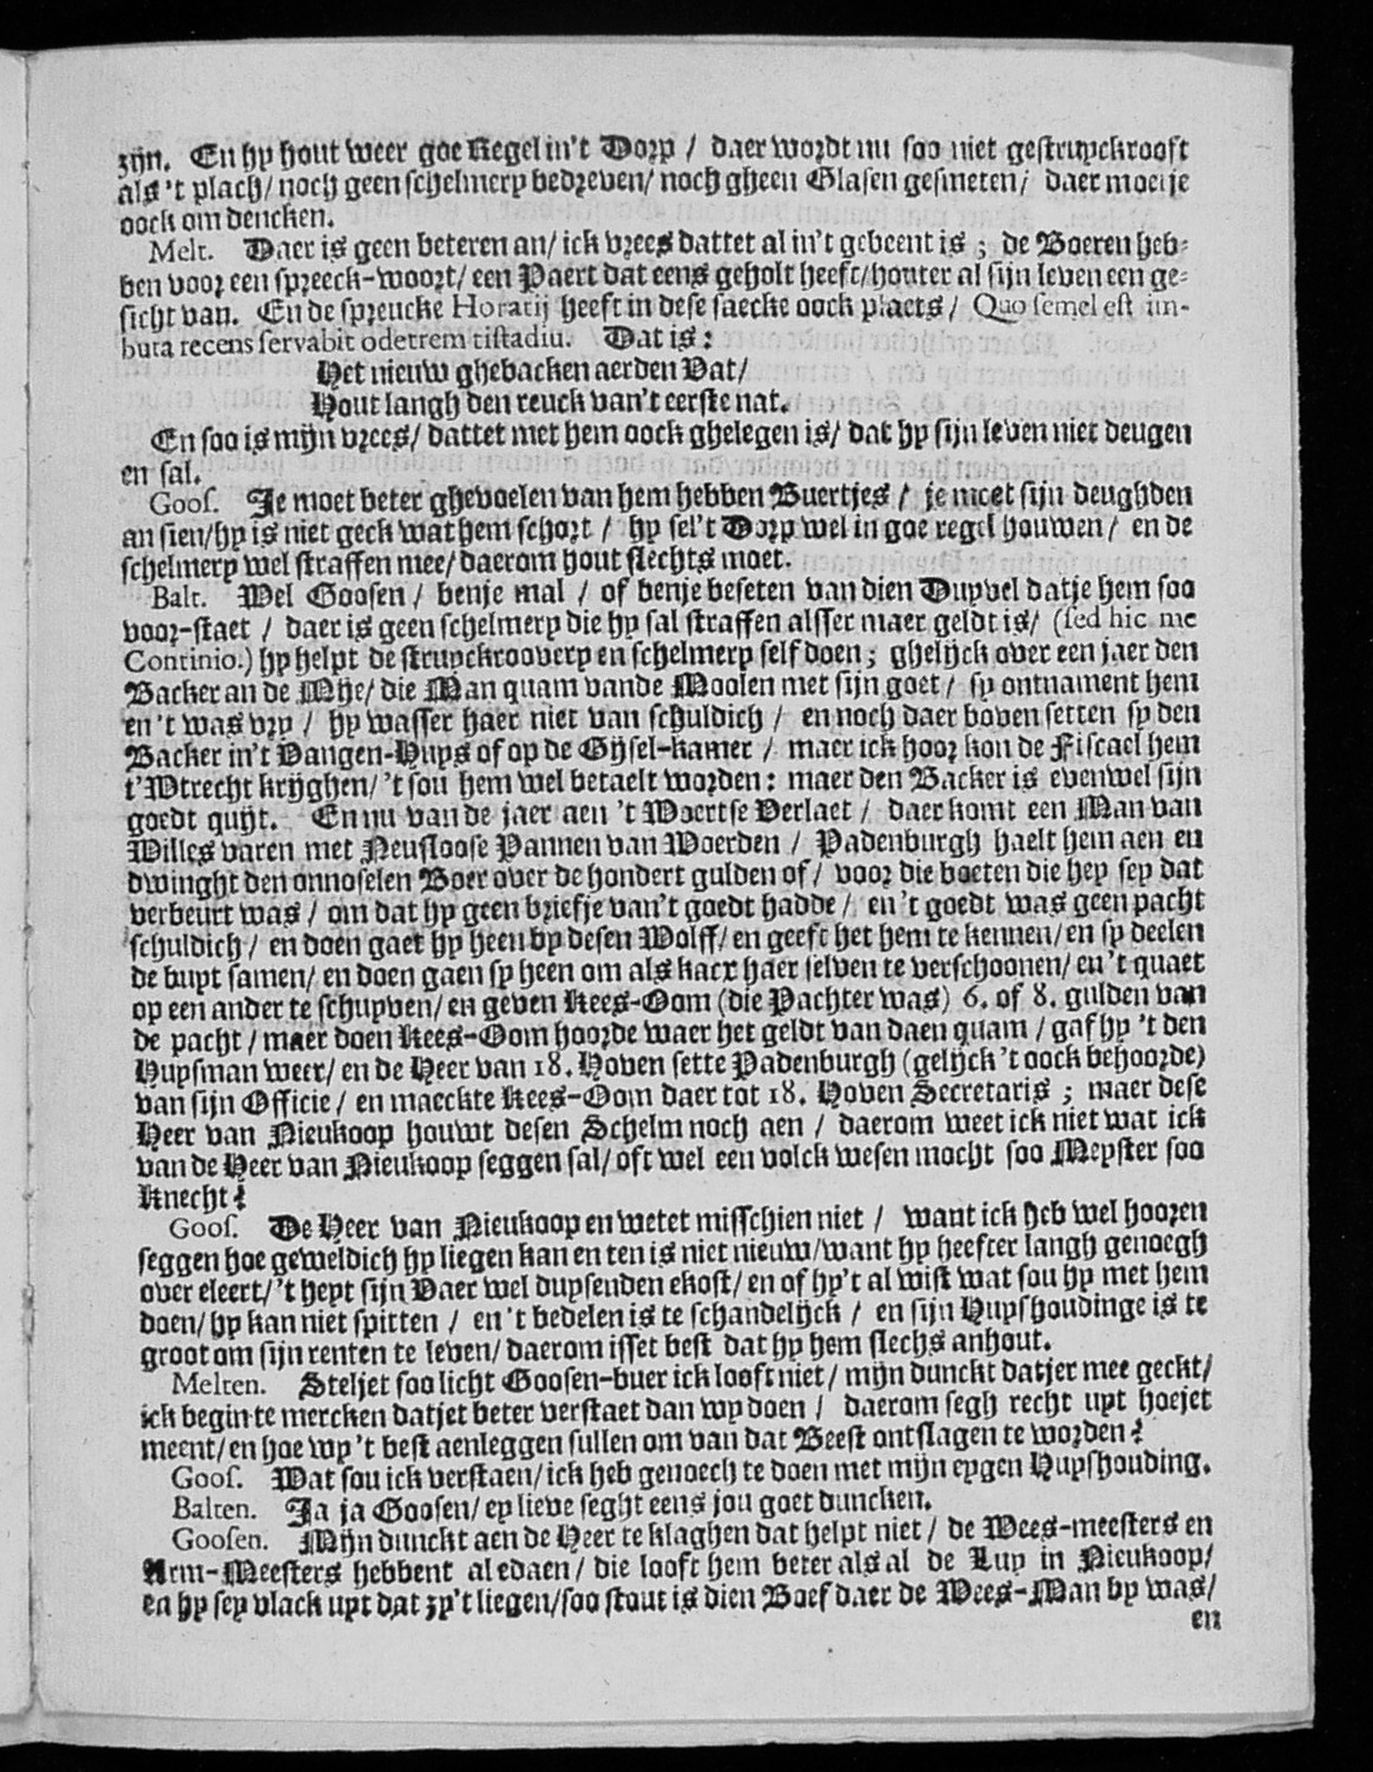 zijn. En hy hout weer goe Regel in't Dorp / daer wordt nu soo niet gestruyckrooft
als 't plach / noch geen schelmery bedreven / noch gheen Glasen gesmeten / daer moetje
oock om dencken.
Melt. Daer is geen beteren an / ick vrees dattet al in't gebeent is ; de Boeren heb-
ben voor een spreeck-woort / een Paert dat eens geholt heeft / houter al sijn leven een ge-
sicht van. En de spreucke Horatij heeft in dese saecke oock plaets / Quo semel est im-
buta recens servabit odetrem tistadiu. Dat is :
Het nieuw ghebacken aerden Vat /
Hout langh den reuck van't eerste nat.
En soo is mijn vrees / dattet met hem oock ghelegen is / dat hy sijn leven niet deugen
en sal.
Goos. Je moet beter ghevoelen van hem hebben Buertjes / je moet sijn deughden
an sien / hy is niet geck wat hem schort / hy sel't Dorp wel in goe regel houwen / en de
schelmery wel straffen mee / daerom hout slechts moet.
Balt. Wel Goosen / benje mal / of benje beseten van dien Duyvel datje hem soo
voor-staet / daer is geen schelmery die hy sal straffen alsser maer geldt is / (sed hic me
Continio.) hy helpt de struyckroovery en schelmery self doen ; ghelijck over een jaer den
Backer an de Mije / die Man quam vande Moolen met sijn goet / sy ontnament hem
en 't was vry / hy wasser haer niet van schuldich / en noch daer boven setten sy den
Backer in't Vangen-Huys of op de Gijsel-kamer / maer ick hoor kon de Fiscael hem
t'Wtrecht krijghen / 't sou hem wel betaelt worden : maer den Backer is evenwel sijn
goedt quijt. En nu van de jaer aen 't Woertse Verlaet / daer komt een Man van
Willes varen met Neusloose Pannen van Woerden / Padenburgh haelt hem aen en
dwinght den onnoselen Boer over de hondert gulden of / voor die boeten die hey sey dat
verbeurt was / om dat hy geen briefje van't goedt hadde / en 't goedt was geen pacht
schuldich / en doen gaet hy heen by desen Wolff / en geeft het hem te kennen / en sy deelen
de buyt samen / en doen gaen sy heen om als kacx haer selven te verschoonen / en 't quaet
op een ander te schuyven / en geven Kees-Oom (die Pachter was) 6. of 8. gulden van
de pacht / maer doen Kees-Oom hoorde waer het geldt van daen quam / gaf hy 't den
Huysman weer / en de Heer van 18. Hoven sette Padenburgh (gelijck 't oock behoorde)
van sijn Officie / en maeckte Kees-Oom daer tot 18. Hoven Secretaris ; maer dese
Heer van Nieukoop houwt desen Schelm noch aen / daerom weet ick niet wat ick
van de Heer van Nieukoop seggen sal / oft wel een volck wesen mocht soo Meyster soo
Knecht ?
Goos. De Heer van Nieukoop en wetet misschien niet / want ick heb wel hooren
seggen hoe geweldich hy liegen kan en ten is niet nieuw / want hy heefter langh genoegh
over eleert / 't heyt sijn Vaer wel duysenden ekost / en of hy't al wist wat sou hy met hem
doen / hy kan niet spitten / en 't bedelen is te schandelijck / en sijn Huyshoudinge is te
groot om sijn renten te leven / daerom isset best dat hy hem slechs anhout.
Melten. Steljet soo licht Goosen-buer ick looft niet / mijn dunckt datjer mee geckt /
ick begin te mercken datjet beter verstaet dan wy doen / daerom segh recht uyt hoejet
meent / en hoe wy 't best aenleggen sullen om van dat Beest ontslagen te worden ?
Goos. Wat sou ick verstaen / ick heb genoech te doen met mijn eygen Huyshouding.
Balten. Ja ja Goosen / ey lieve seght eens jou goet duncken.
Goosen. Mijn dunckt aen de Heer te klaghen dat helpt niet / de Wees-meesters en
Arm-Meesters hebbent al edaen / die looft hem beter als al de Luy in Nieukoop /
en hy sey vlack uyt dat zy't liegen / soo stout is dien Boef daer de Wees-Man by was /
en